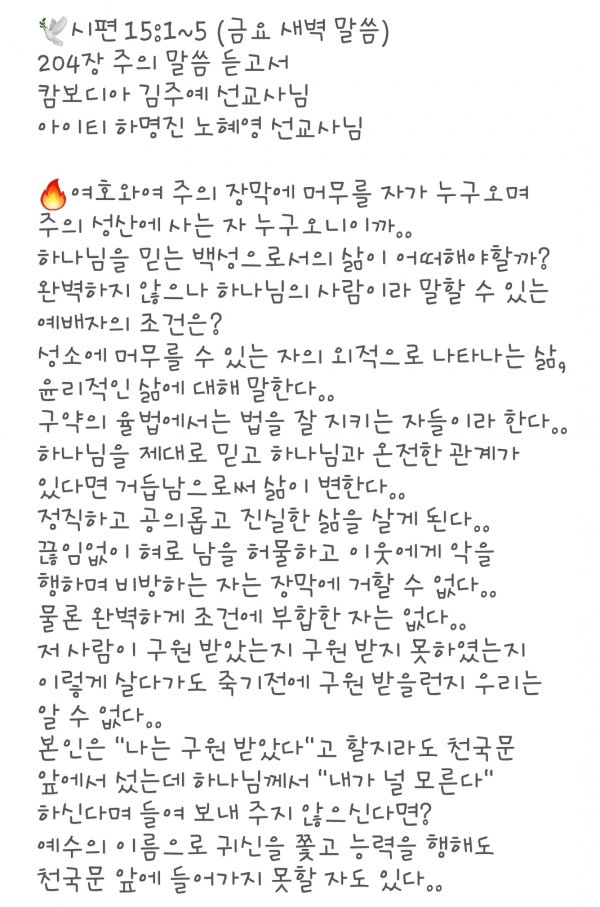 🕊시편 15:1~5 (금요 새벽 말씀)
204장 주의 말씀 듣고서
캄보디아 김주예 선교사님
아이티 하명진 노혜영 선교사님
🔥여호와여 주의 장막에 머무를 자가 누구오며
주의 성산에 사는 자 누구오니이까..
하나님을 믿는 백성으로서의 삶이 어떠해야할까?
완벽하지 않으나 하나님의 사람이라 말할 수 있는
예배자의 조건은?
성소에 머무를 수 있는 자의 외적으로 나타나는 삶,
윤리적인 삶에 대해 말한다..
구약의 율법에서는 법을 잘 지키는 자들이라 한다..
하나님을 제대로 믿고 하나님과 온전한 관계가
있다면 거듭남으로써 삶이 변한다..
정직하고 공의롭고 진실한 삶을 살게 된다..
끊임없이 혀로 남을 허물하고 이웃에게 악을
행하며 비방하는 자는 장막에 거할 수 없다..
물론 완벽하게 조건에 부합한 자는 없다..
저 사람이 구원 받았는지 구원 받지 못하였는지
이렇게 살다가도 죽기전에 구원 받을런지 우리는
알 수 없다..
본인은 "나는 구원 받았다"고 할지라도 천국문
앞에서 섰는데 하나님께서 "내가 널 모른다"
하신다며 들여 보내 주지 않으신다면?
예수의 이름으로 귀신을 쫓고 능력을 행해도
천국문 앞에 들어가지 못할 자도 있다..